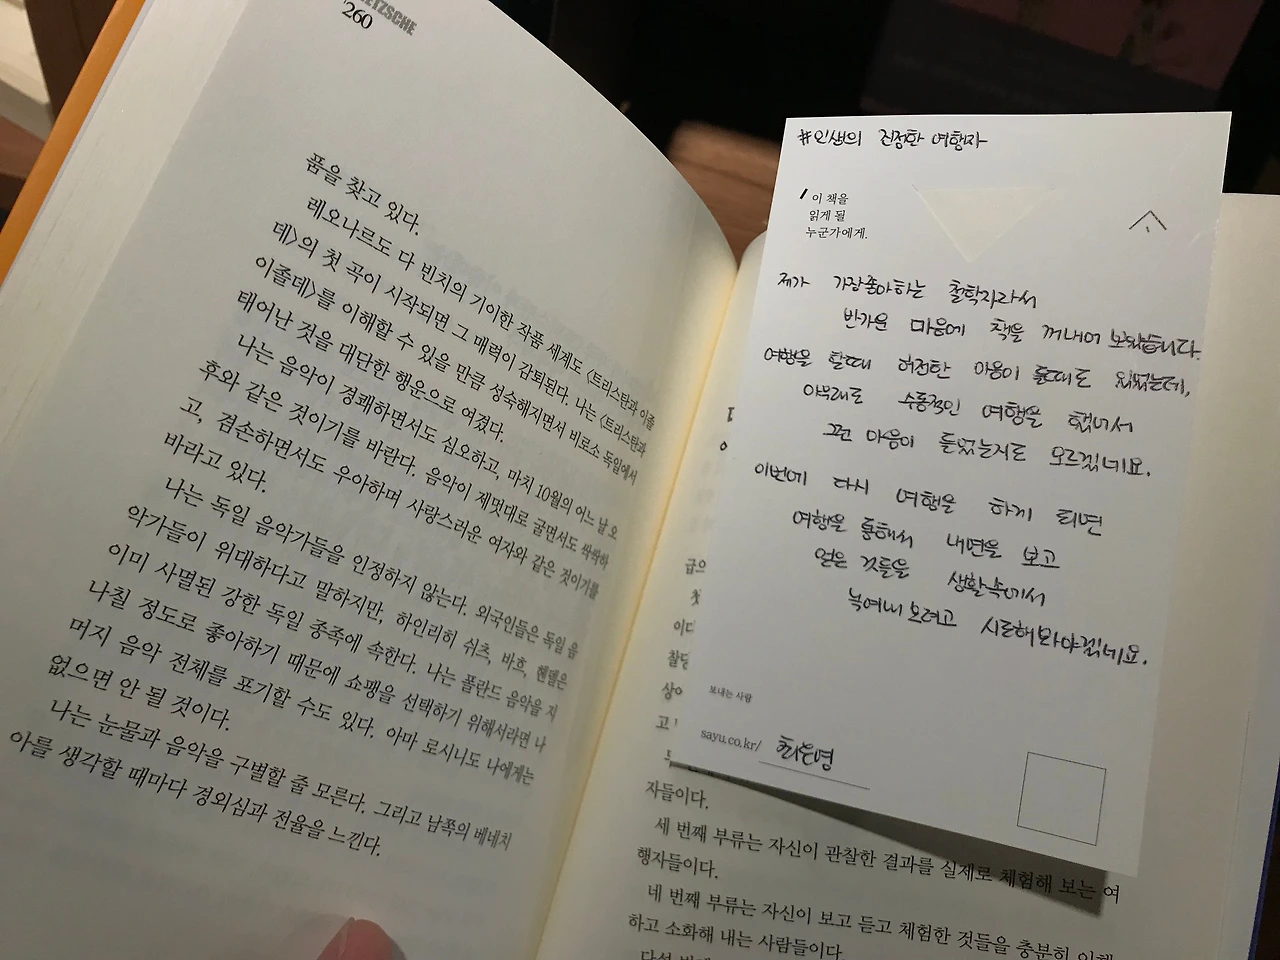 NIETZSCHE
260
품을 찾고 있다.
레오나르도 다 빈치의 기이한 작품 세계도 〈트리스탄과 이졸
데〉의 첫 곡이 시작되면 그 매력이 감퇴된다. 나는 〈트리스탄과
이졸데〉를 이해할 수 있을 만큼 성숙해지면서 비로소 독일에서
태어난 것을 대단한 행운으로 여겼다.
나는 음악이 경쾌하면서도 심오하고, 마치 10월의 어느 날 오
후와 같은 것이기를 바란다. 음악이 제멋대로 굴면서도 싹싹하
고, 겸손하면서도 우아하며 사랑스러운 여자와 같은 것이기를
바라고 있다.
나는 독일 음악가들을 인정하지 않는다. 외국인들은 독일 음
악가들이 위대하다고 말하지만, 하인리히 쉬츠, 바흐, 헨델은
이미 사멸된 강한 독일 종족에 속한다. 나는 폴란드 음악을 지
나칠 정도로 좋아하기 때문에 쇼팽을 선택하기 위해서라면 나
머지 음악 전체를 포기할 수도 있다. 아마 로시니도 나에게는
없으면 안 될 것이다.
나는 눈물과 음악을 구별할 줄 모른다. 그리고 남쪽의 베네치
아를 생각할 때마다 경외심과 전율을 느낀다.
#인생의 진정한 여행자
이 책을
읽게 될
누군가에게.
제가 가장좋아하는 철학자라서
반가운 마음에 책을 꺼내어 보았습니다.
여행을 할때 허전한 마음이 들때도 있었는데,
아무래도 수동적인 여행을 했어서
그런 마음이 들었는지도 모르겠네요.
이번에 다시 여행을 하게 되면
여행을 통해서 내면을 보고
얻은 것들을 생활속에서
녹여내 보려고 시도해봐야겠네요.
보내는 사람
sayu.co.kr/
급의
이다
찰당
상어
고
자들이다.
세 번째 부류는 자신이 관찰한 결과를 실제로 체험해 보는 여
행자들이다.
네 번째 부류는 자신이 보고 듣고 체험한 것들을 충분히 이해
하고 소화해 내는 사람들이다.